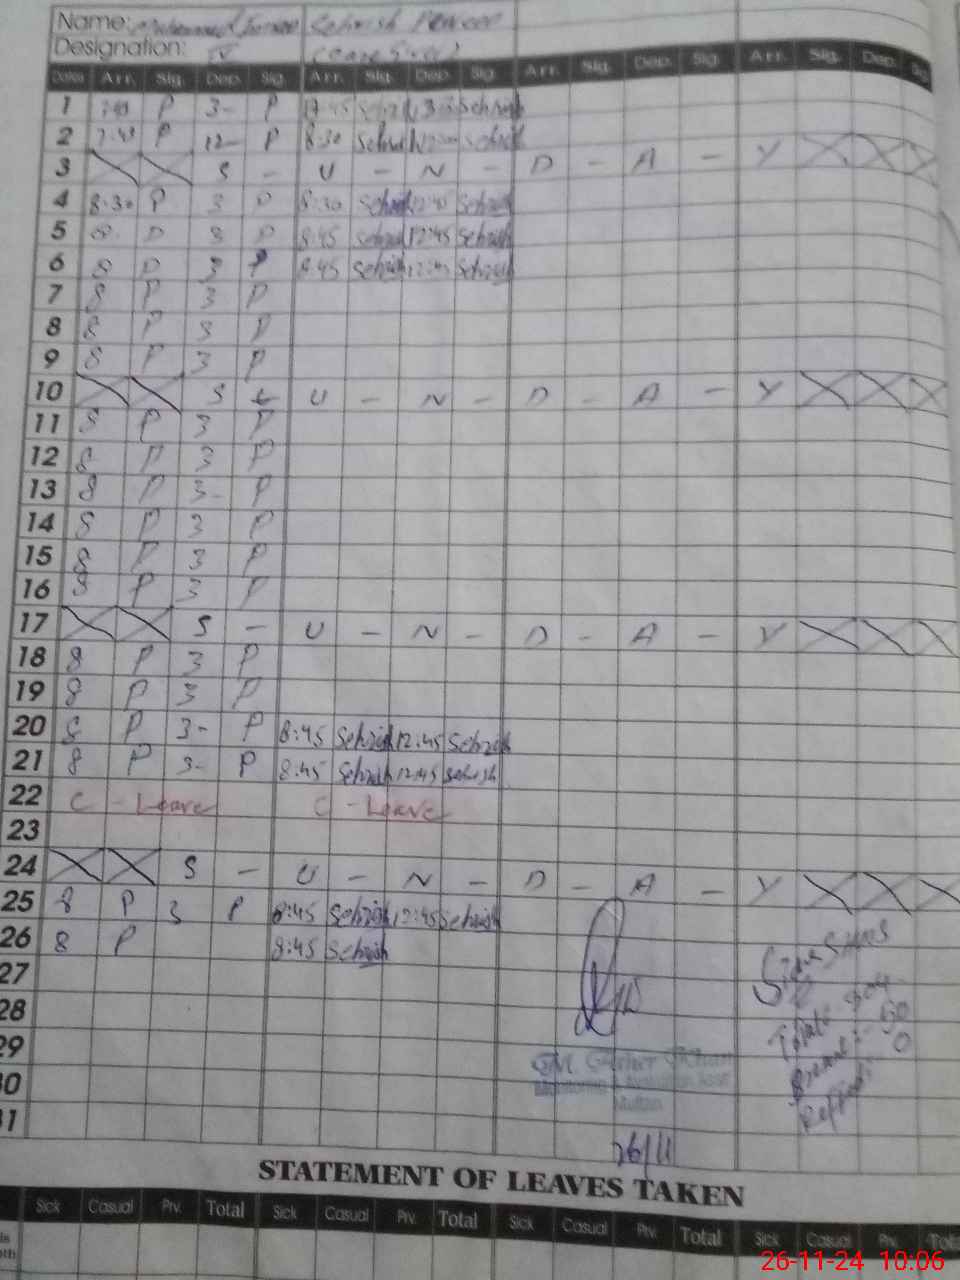 Name: Sehrish
Designation: IV
Dates Arr. Sig. Dep. Sig. Arr. Sig. Dep. Sig. Arr. Sig. Dep. Sig. Arr. Sig. Dep. Sig.
1 P 3- P Sehrish
2 7:43 P 12- P 8:30 Sehrish Sehrish
3 S - U - N - D - A - Y
4 8:30 P 3 P 8:30 Sehrish 12:45 Sehrish
5 8 P 3 P 8:45 Sehrish 12:45 Sehrish
6 8 P 3 P 8:45 Sehrish 12:45 Sehrish
7 8 P 3 P
8 8 P 3 P
9 8 P 3 P
10 S - U - N - D - A - Y
11 8 P 3 P
12 8 P 3 P
13 8 P 3- P
14 8 P 3 P
15 8 P 3 P
16 8 P 3 P
17 S - U - N - D - A - Y
18 8 P 3 P
19 8 P 3 P
20 8 P 3- P 8:45 Sehrish 12:45 Sehrish
21 8 P 3- P 8:45 Sehrish 12:45 Sehrish
22 C - Leave C - Leave
23
24 S - U - N - D - A - Y
25 8 P 3 P 8:45 Sehrish 12:45 Sehrish
26 8 P 8:45 Sehrish
27
28
29
30
31
Multan
26/11
STATEMENT OF LEAVES TAKEN
Sick Casual Prv. Total Sick Casual Prv. Total Sick Casual Prv. Total Sick Casual Prv. Total
26-11-24 10:06